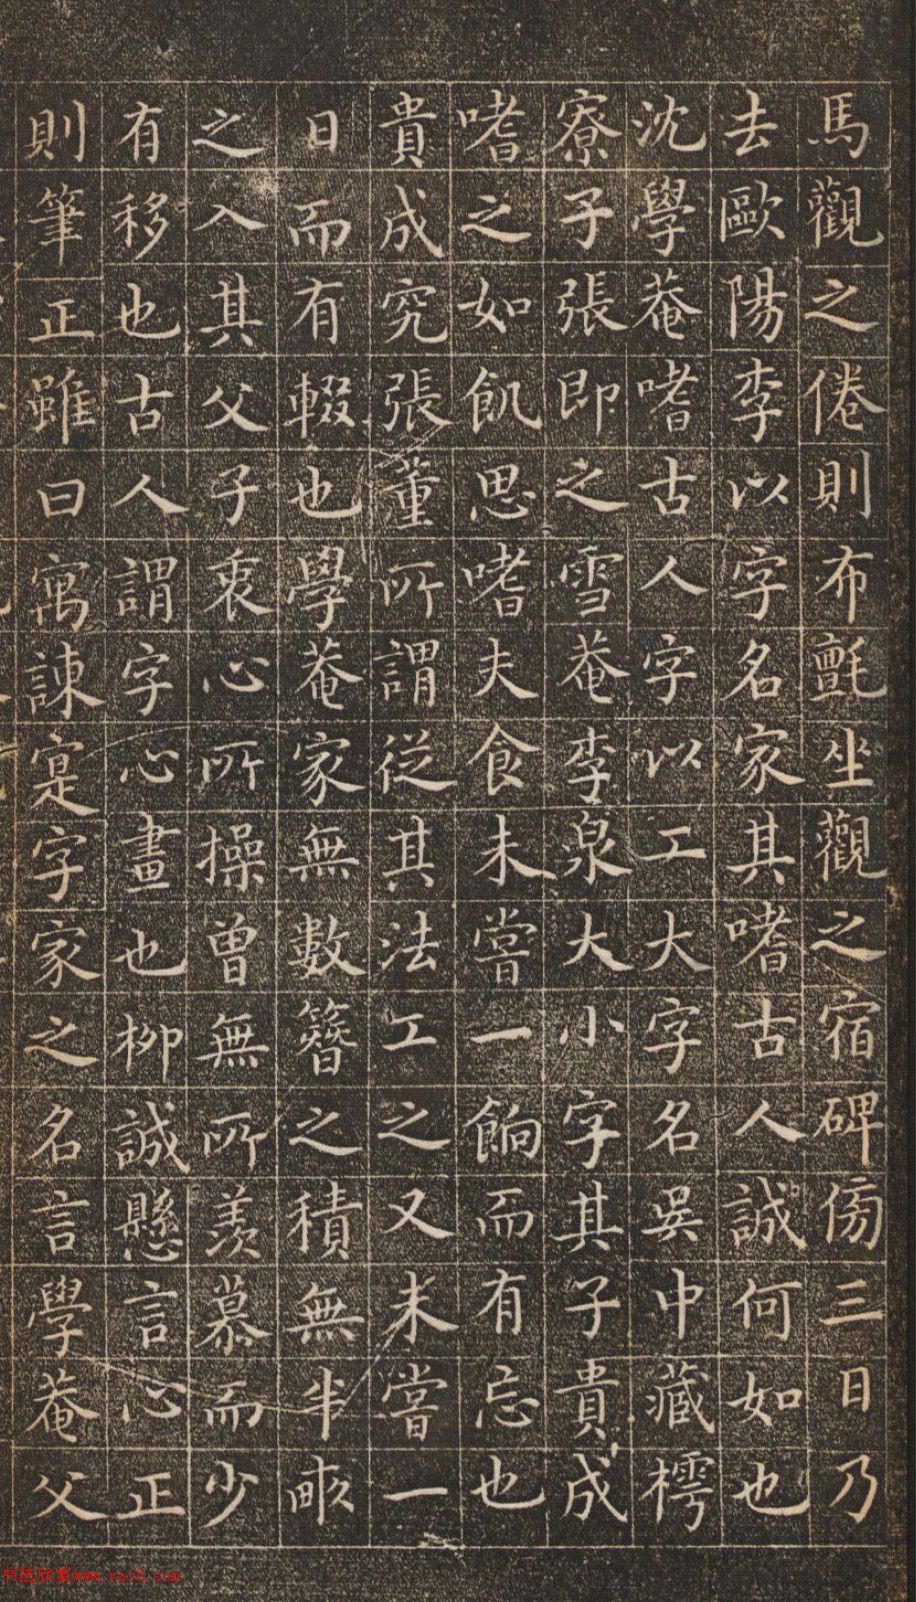 馬觀之倦則布氈坐觀之宿碑傍三日乃
去歐陽李以字名家其嗜古人誠何如也
沈學菴嗜古人字以工大字名吳中藏樗
寮子張即之雪菴李泉大小字其子貴成
嗜之如飢思嗜夫食未嘗一餉而有忘也
貴成究張董所謂從其法工之又未嘗一
日而有輟也學菴家無數簪之積無半畝
之入其父子衷心所操曾無所羨慕而少
有移也古人謂字心畫也柳誠懸言心正
則筆正雖曰寓諫寔字家之名言學菴父
书法欣赏www.yac8.com